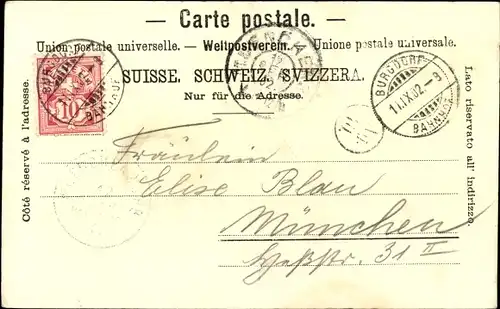 — Carte postale. —
Union postale universelle. — Weltpostverein. — Unione postale universale.
SUISSE. SCHWEIZ. SVIZZERA.
Nur für die Adresse.
Côté réservé à l'adresse.
Lato riservato all' indirizzo.
10
BURGDORF
BAHNHOF
BURGDORF
11.IX.02.-9
BAHNHOF
Fräulein
Elise Blau
München
31 II